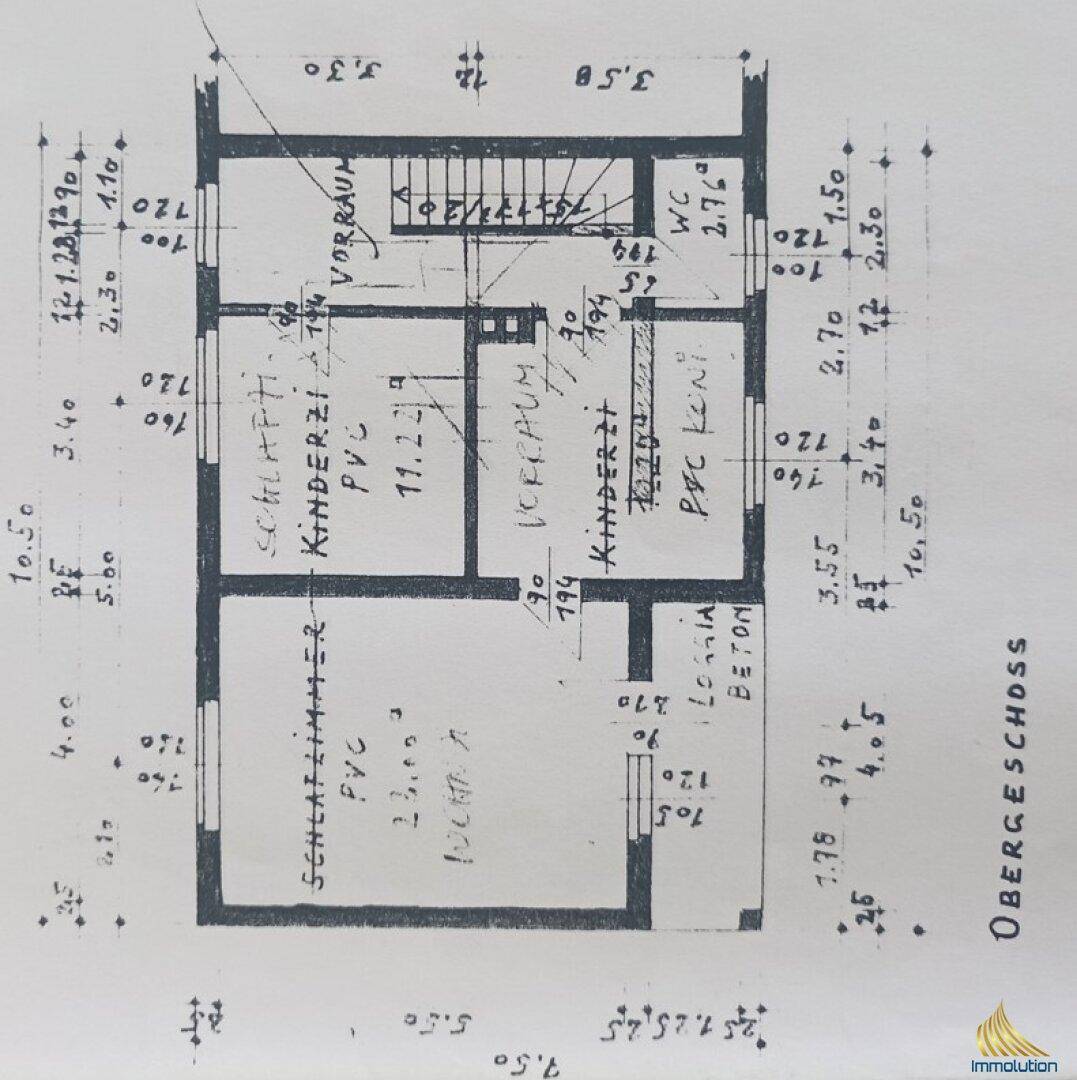 OBERGESCHOSS
3,30
12
3,58
VORRAUM
15×17³/20
WC
2.76
65
194
90
194
90
194
SCHLAFZI.
KINDERZI
PVC
11.22
VORRAUM
KINDERZI
PVC
90
194
SCHLAFZIMMER
PVC
23.00
WOHNZI
LOGGIA
BETON
210
90
120
105
120
100
120
160
120
100
120
140
10.50
90
12
1.28
12
3.40
25
4.00
25
1.10
2.30
5.00
2.10
1.50
2.70
3.55
97
1.78
2.30
12
3,40
25
4.05
25
10,50
25
5.50
25
1.25
25
7.50
Immolution